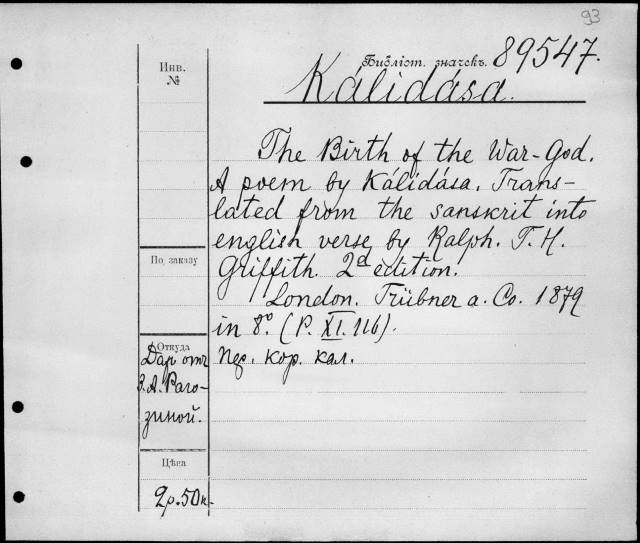 93
Инв.
№
Библіот. значекъ. 89547.
Kálidása.
The Birth of the War-God.
A poem by Kálidása. Trans-
lated from the sanskrit into
english verse by Ralph. T. H.
Griffith. 2d edition.
London. Trübner a. Co. 1879
in 8º. (P. XI. 116).
По заказу
Откуда
Даръ отъ
З. А. Раго-
зиной.
пер. кор. кал.
Цѣна
2р. 50к.